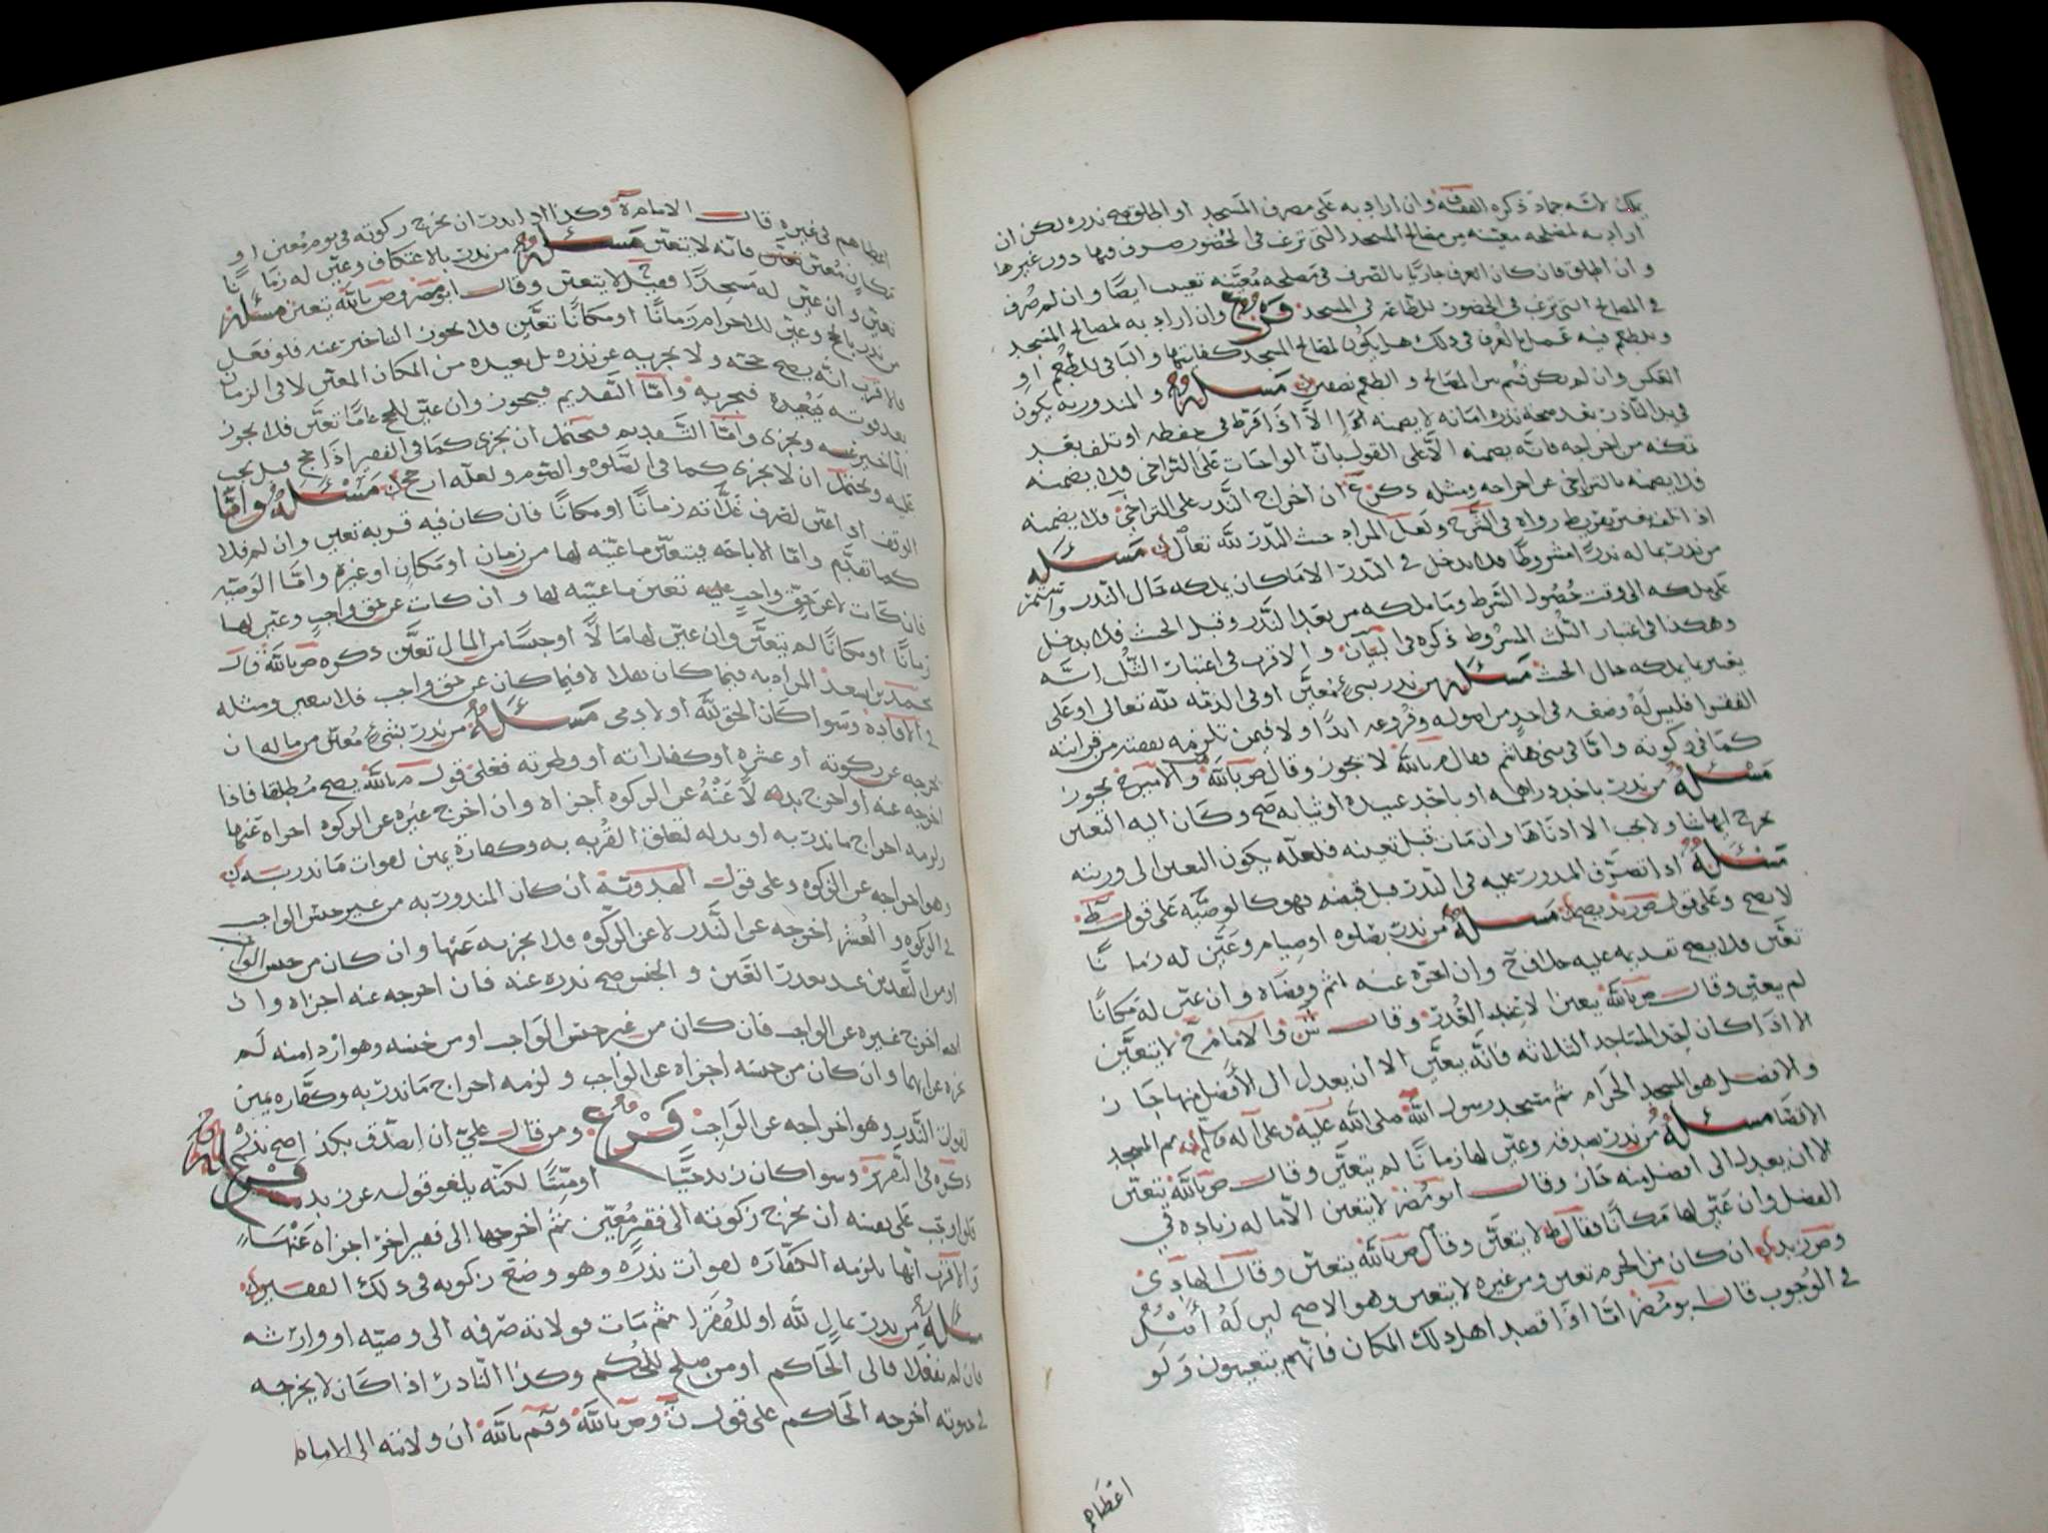 يملك لانه جماد ذكره الفقيه ف وان اراد به على مصرف المسجد او اطلق صح نذره لكن ان
اراد به لمصلحه معينه من مصالح المسجد التي ترغب في الحضور صرف فيها دون غيرها
و ان اطلق فان كان العرف جاريا بالصرف في مصلحه معينه تعينت ايضا وان لم صرف
في المصالح التي ترغب في الحضور للطاعه في المسجد فرع وان اراد به لمصالح المسجد
وللطعم فيه عمل بالعرف في ذلك هل يكون لمصالح المسجد كفايتها والباقي للطعم او
العكس وان لم يكن قسم بين المصالح و الطعم نصفين مسئله و المنذور به يكون
في يد الناذر بعد صحة نذره امانه لا يضمنه الا اذا فرط في حفظه او تلف بعد
تمكنه من اخراجه فانه يضمنه الا على القول بان الواجبات على التراخي فلا يضمنه
فلا يضمنه بالتراخي عن اخراجه ومثله ذكر ان اخراج النذر على التراخي فلا يضمنه
اذا تلف بغير تفريط رواه في الشرح ولعل المراد حيث النذر لله تعالى مسئله
من نذر بما له نذرا مشروطا فلا يدخل في النذر الا ما كان يملكه حال النذر واستمر
على ملكه الى وقت حصول الشرط وما ملكه من بعد النذر وقبل الحنث فلا يدخل
وهكذا في اعتبار الثلث المشروط ذكره في البيان و الاقرب في اعتبار الثلث انه
يعتبر بما يملكه حال الحنث مسئله من نذر بشيء معين او في الذمه لله تعالى او على
الفقرا فليس له وضعه في احد من اصوله وفروعه ابدا ولا فيمن تلزمه نفقته من قرابته
كما في زكوته واما في بني هاشم فقال م بالله لا يجوز وقال ص بالله والامير ح يجوز
مسئله من نذر باحد دراهمه او باحد عبيده او ثيابه صح وكان اليه التعيين
يخرج ايها شا ولا يجب الا ادناها وان مات قبل تعيينه فلعله يكون التعيين الى ورثته
مسئله اذا تصرف المنذور عليه في النذر قبل قبضه فهو كالوصيه على قول ط
لا يصح وعلى قول ص زيد يصح مسئله من نذر بصلوه او صيام وعين له زمانا
تعين فلا يصح تقديمه عليه خلاف ح وان اخره عنه اثم وقضاه وان عين له مكانا
لم يتعين وقال ص بالله يتعين الا عند العذر وقال ش والامام ح لا يتعين
الا اذا كان احد المساجد الثلاثه فانه يتعين الا ان يعدل الى الافضل منها جاز
والافضل هو المسجد الحرام ثم مسجد رسول الله صلى الله عليه وعلى آله وسلم ثم المسجد
الاقصا مسئله من نذر بصدقه وعين لها زمانا لم يتعين وقال ص بالله يتعين
الا ان يعدل الى افضل منه جاز وقال ابو مضر لا يتعين الا ما له زياده في
الفضل وان عين لها مكانا فقال ط لا يتعين وقال ص بالله يتعين وقال الهادي
وص زيد ان كان من الحرم تعين ومن غيره لا يتعين وهو الاصح ليس له اصل
في الوجوب قال ابو مضر اما اذا قصد اهل ذلك المكان فانهم يتعينون ولو
اعطاهم
اعطاهم في غيره وقال الامام ة وكذا اذا نذر ان يخرج زكوته في يوم معين او
مكان معين تعين فانه لا يتعين مسئله من نذر بالاعتكاف وعين له زمانا
تعين وان عين له مسجدا فقيل لا يتعين وقال ابو مضر وص بالله يتعين مسئله
من نذر بالحج وعين للاحرام زمانا او مكانا تعين فلا يجوز التاخير عنه فلو فعل
فالاقرب انه يصح حجه ولا يجزيه عن نذره بل يعيده من المكان المعين لا في الزمان
بعد فوته فيعيده فيجزيه واما التقديم فيجوز وان عين للحج عاما تعين فلا يجوز
التاخير عنه ويجزي واما التقديم فيحتمل ان يجزي كما في الفقير اذا حج قبل يجب
عليه ويحتمل ان لا يجزي كما في الصلوه والصوم ولعله ارجح مسئله واما
الوقف اذا عين لصرف غلاته زمانا او مكانا فان كان فيه قربه تعين وان لم فلا
كما تقدم واما الاباحه فيتعين ما عينه لها من زمان او مكان او غيره واما الوصيه
فان كانت لا عن حق واجب عليه تعين ما عينه لها وان كانت عن حق واجب وعين لها
زمانا او مكانا لم يتعين وان عين لها مالا او جنسا من المال تعين ذكره ص بالله قال
محمد بن اسعد المراد به فيما كان نفلا لا فيما كان عن حق واجب فلا يتعين ومثله
في الافاده وسوا كان الحق لله او لادمي مسئله من نذر بشيء معين من ماله ان
يخرجه عن زكوته او عشره او كفاراته او فطرته فعلى قول م بالله يصح مطلقا فاذا
اخرجه عنه او اخرج بدلا عنه عن الزكوه اجزاه وان اخرج غيره عن الزكوه اجزاه عنها
ولزمه اخراج ما نذر به او بدله لتعلق القربه به وكفارة يمين لفوات ما نذر به
وهو اخراجه عن الزكوه وعلى قول الهدويه ان كان المنذور به من غير جنس الواجب
في الزكوه والعشر اخرجه عن النذر لا عن الزكوه فلا يجزيه عنها وان كان من جنس الواجب
او من النقدين عند تعذر العين و الجنس صح نذره عنه فان اخرجه عنه اجزاه وان
اخرج غيره عن الواجب فان كان من غير جنس الواجب او من جنسه وهو ازدا منه لم
يجزه عن ايهما وان كان من جنسه اجزاه عن الواجب ولزمه اخراج ما نذر به وكفاره يمين
لفوات النذر وهو اخراجه عن الواجب فرع ومن قال علي ان اتصدق بكذا صح نذره
ذكره في التقرير وسوا كان زيد حيا او ميتا لكنه يلغو قوله عن زيد فرع
فلو اوجب على نفسه ان يخرج زكوته الى فقير معين ثم اخرجها الى فقير اخر اجزاه عنها
والاقرب انها تلزمه الكفاره لفوات نذره وهو وضع زكوته في ذلك الفقير
مسئله من نذر بمال لله او للفقرا ثم مات فولاية صرفه الى وصيه او وارثه
فان لم يفعلا فالى الحاكم او من صلح للحكم وكذا الناذر اذا كان لا يخرجه
في حيوته اخرجه الحاكم على قول ن وص بالله وقم بالله ان ولايته الى الامام